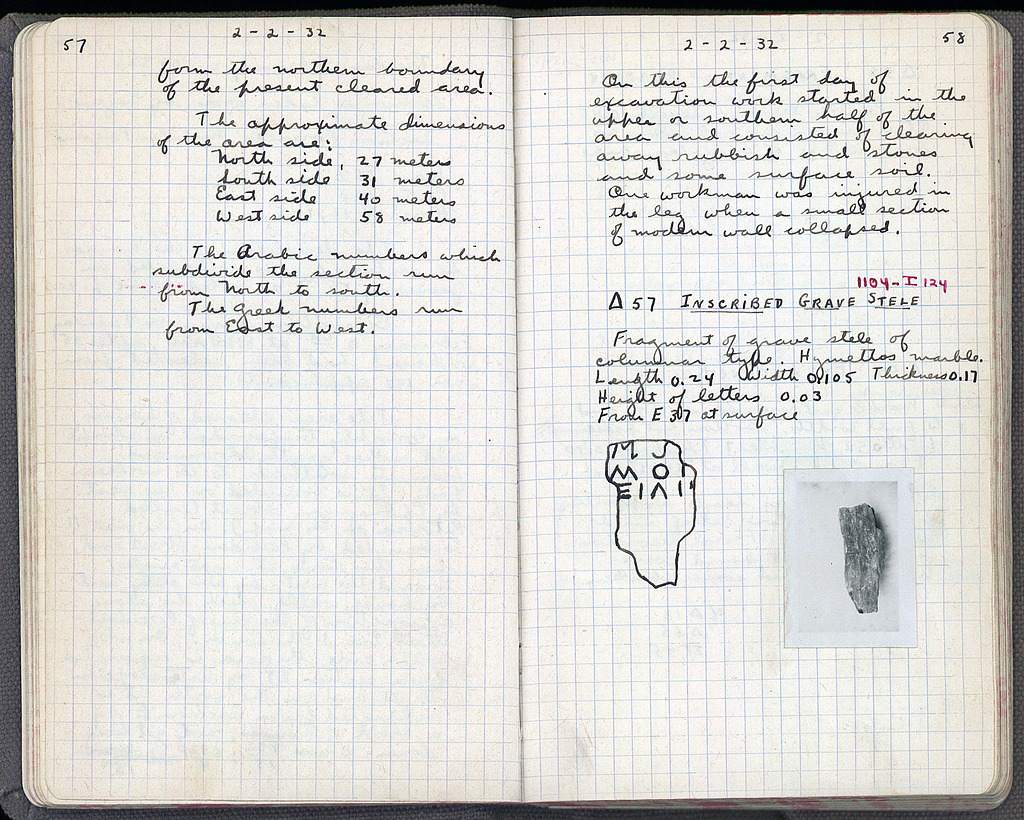 57
2 - 2 - 32
form the northern boundary
of the present cleared area.
The approximate dimensions
of the area are:
North side, 27 meters
South side 31 meters
East side 40 meters
West side 58 meters
The Arabic numbers which
subdivide the section run
from North to south.
The Greek numbers run
from East to West.
2 - 2 - 32
58
On this the first day of
excavation work started in the
upper or southern half of the
area and consisted of clearing
away rubbish and stones
and some surface soil.
One workman was injured in
the leg when a small section
of modern wall collapsed.
1104 - I 124
Δ 57 INSCRIBED GRAVE STELE
Fragment of grave stele of
columnar type. Hymettos marble.
Length 0.24 Width 0.105 Thickness 0.17
Height of letters 0.03
From E 37 at surface